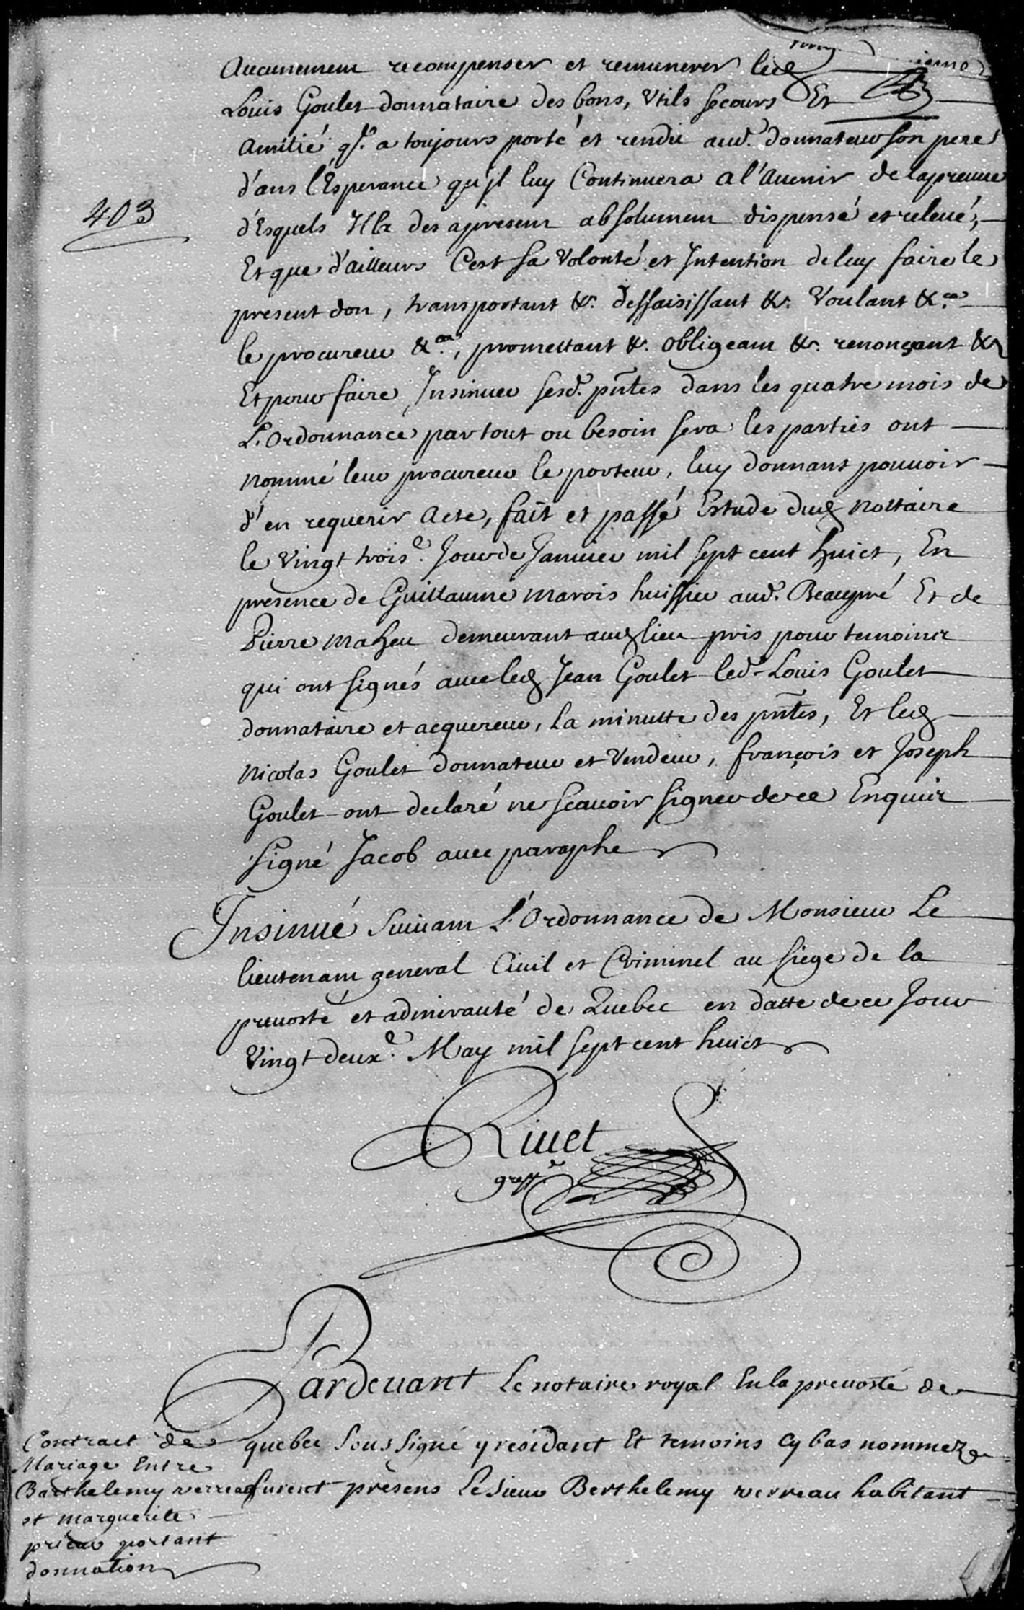 Aucunement recompenser et remunerer led
Louis Goulet donnataire des bons, Utils secours Et
Amitié q.l a toujours porté et rendu aud. donnateur son pere
d'ans l'Esperance qu'jl luy Continuera a l'Auenir de la preuue
403
d'Esquels Il l'a des apresent absolument dispensé et releué,
Et que d'ailleurs C'est sa Volonté et Intention de luy faire le
present don, transportant &c. dessaisissant &c. Voulant &c.a
le procureur &c.a, promettant &c. obligeant &c. renonçant &c
Et pour faire Insinuer sesd. pntes dans les quatre mois de
L'Ordonnance par tout ou besoin sera les parties ont
nommé leur procureur le porteur, luy donnant pouuoir
d'en requerir Acte, fait et passé Estude dud nottaire
le Vingt trois.e Jour de Januier mil sept cent huict, En
presence de Guillaume Marois huissier aud. Beaupré Et de
Pierre Maheu demeurant aud lieu pris pour temoins
qui ont signés auec led Jean Goulet led. Louis Goulet
donnataire et acquereur, la minutte des pntes, Et led
Nicolas Goulet donnateur et Vendeur, françois et Joseph
Goulet ont declaré ne scauoir signer de ce Enquis
signé Jacob auec paraphe
Insinué suiuant L'Ordonnance de Monsieur Le
lieutenant general Ciuil et Criminel au siege de la
preuosté et admirauté de Quebec en datte de ce Jour
Vingt deux.e May mil sept cent huict
Riuet
greff.r
Pardeuant Le notaire royal En la preuosté de
quebec sous signé y residant Et temoins cy bas nommez
furent presens Le sieur Berthelemy verreau habitant
Contract de
Mariage Entre
Barthelemy verreau
et marguerite
prieur portant
donnation